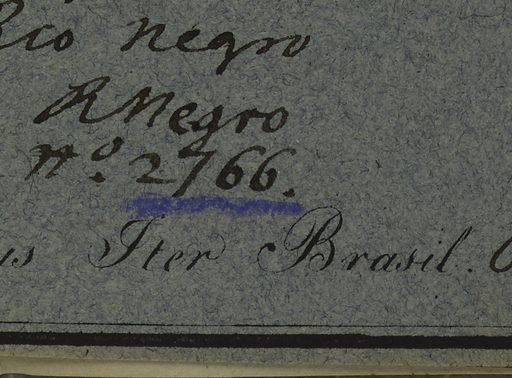 Rio negro
RNegro
No. 2766.
us Iter Brasil.